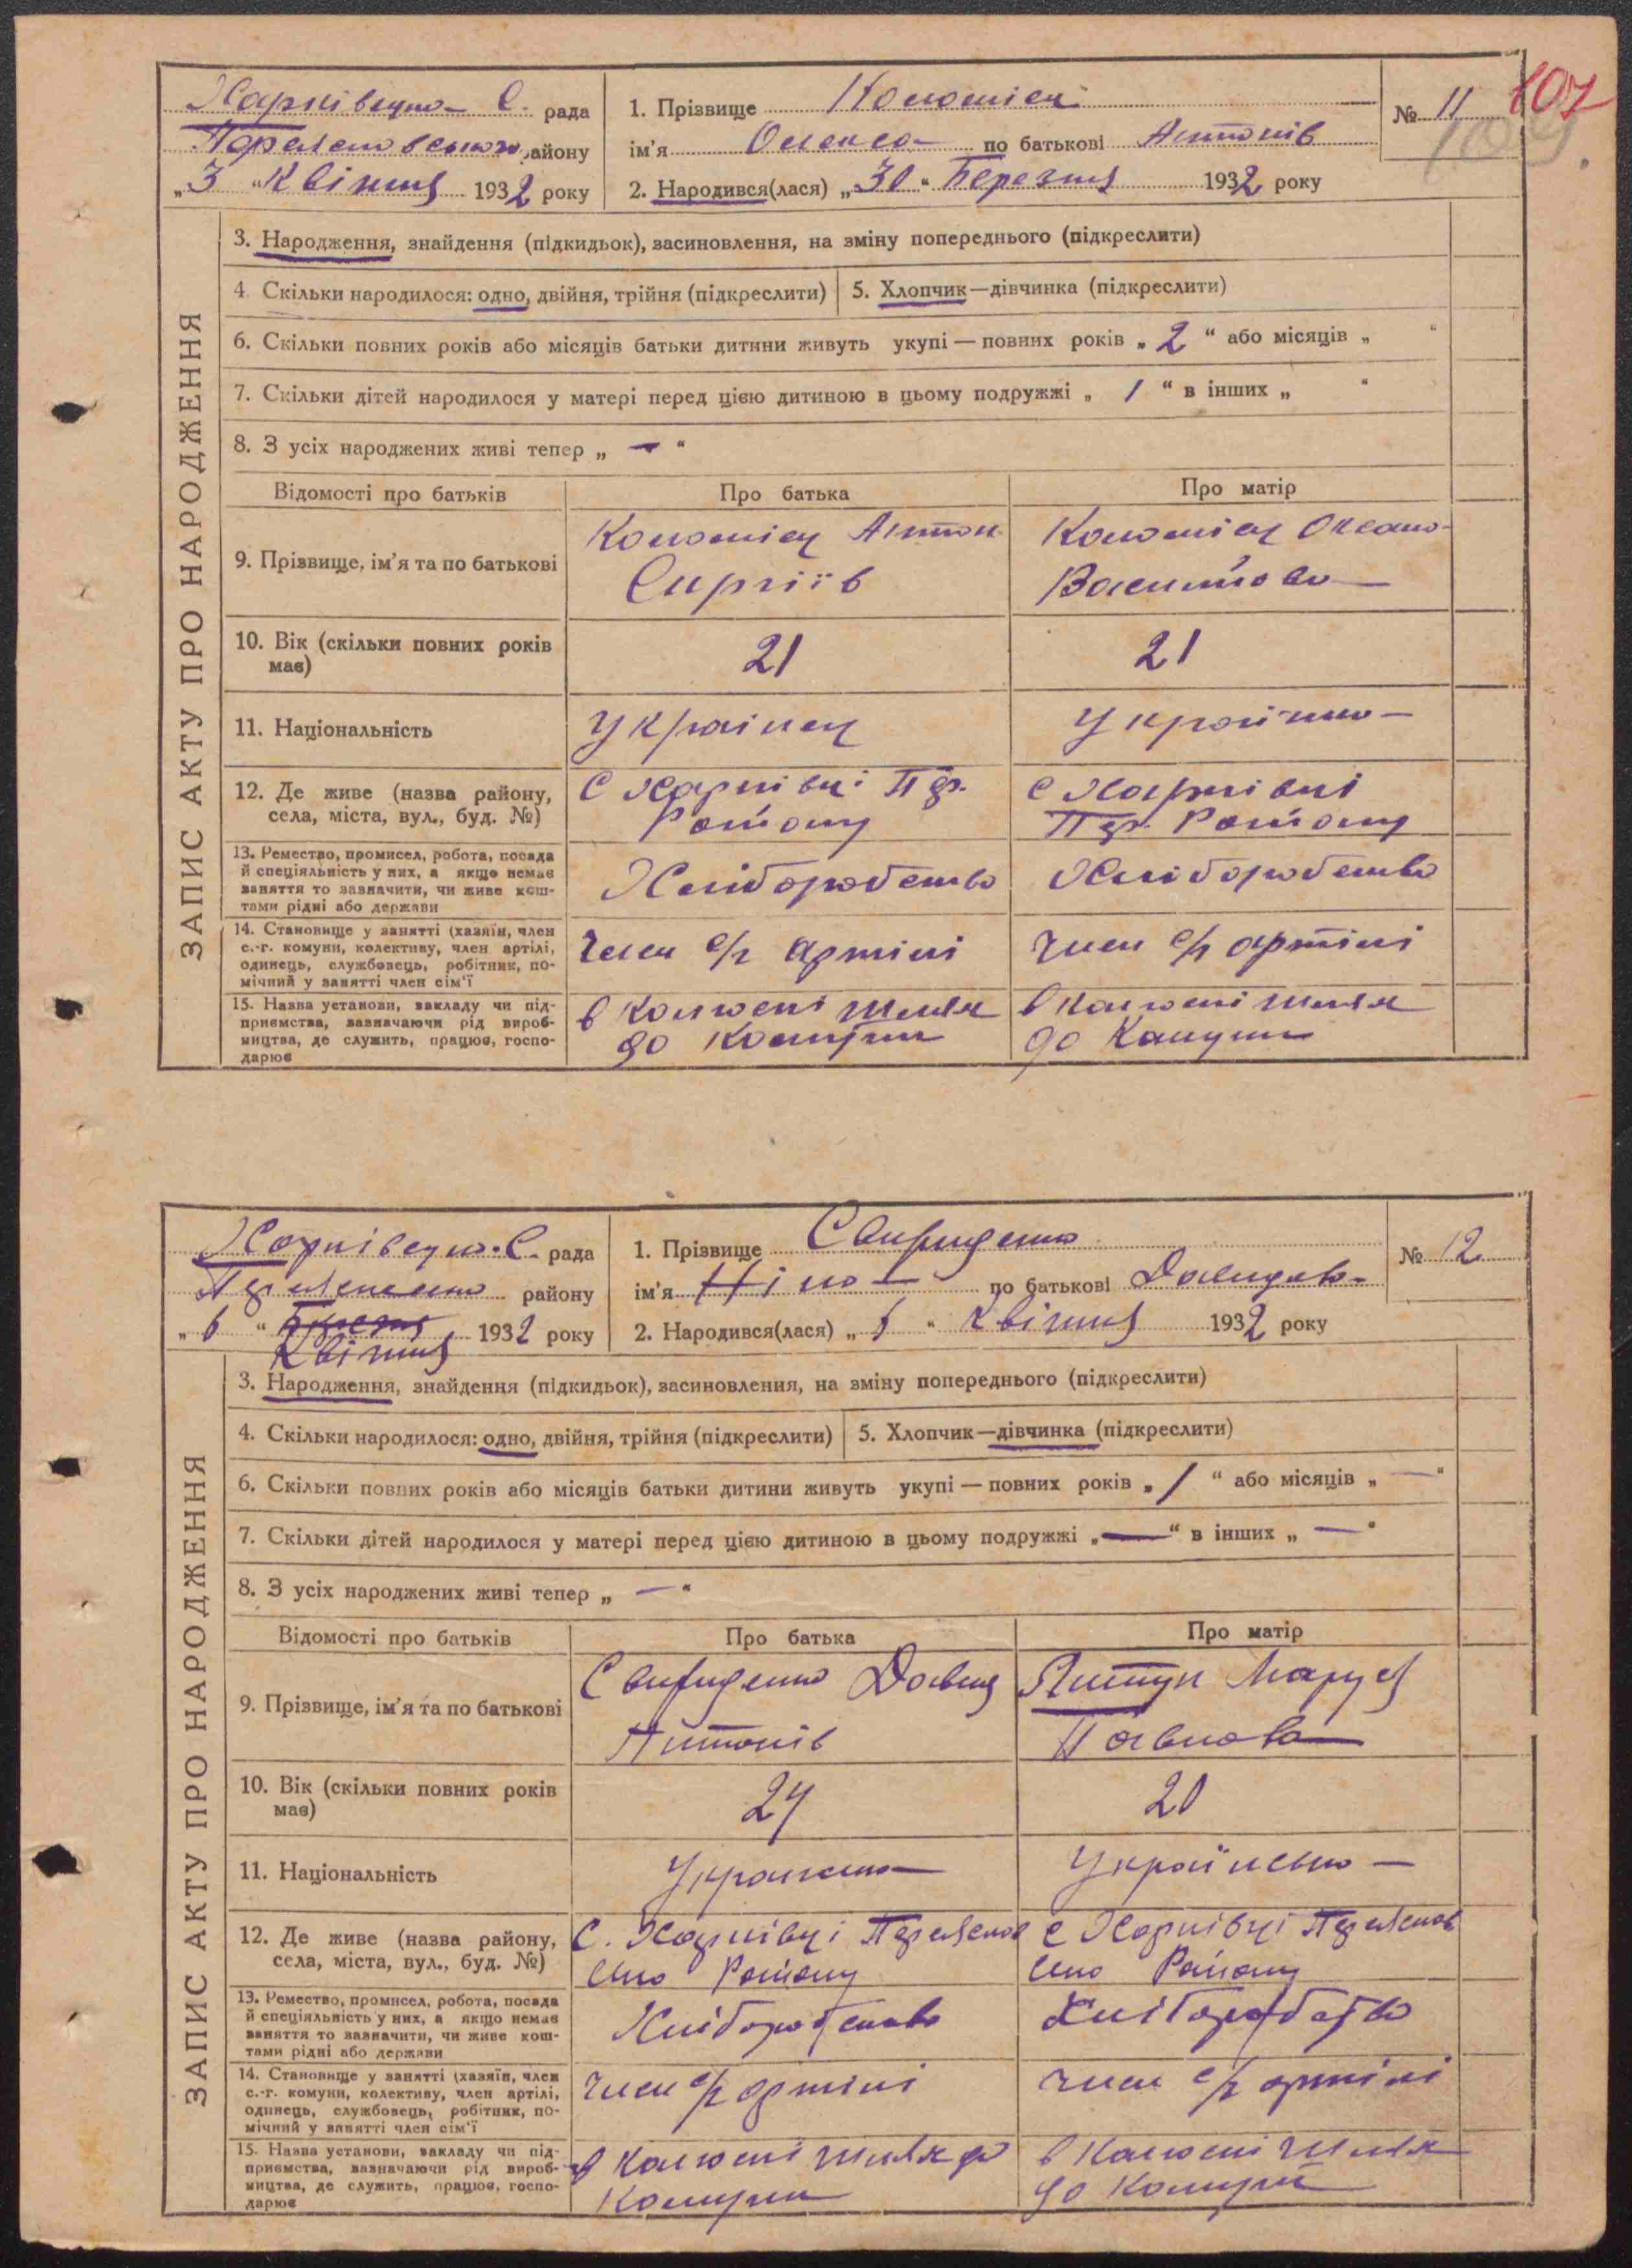 Харківецька С. рада
Переяславського району
„3“ Квітня 1932 року
1. Прізвище Коломієц
ім'я Олекса по батькові Антонів
2. Народився(лася) „30“ Березня 1932 року
№ 11
107
109
ЗАПИС АКТУ ПРО НАРОДЖЕННЯ
3. Народження, знайдення (підкидьок), засиновлення, на зміну попереднього (підкреслити)
4. Скільки народилося: одно, двійня, трійня (підкреслити)
5. Хлопчик—дівчинка (підкреслити)
6. Скільки повних років або місяців батьки дитини живуть укупі — повних років „2“ або місяців „ “
7. Скільки дітей народилося у матері перед цією дитиною в цьому подружжі „1“ в інших „ “
8. З усіх народжених живі тепер „—“
Відомості про батьків Про батька Про матір
9. Прізвище, ім'я та по батькові
Коломієц Антон
Сиргіїв
Коломієц Оксана
Василова
10. Вік (скільки повних років
має)
21
21
11. Національність
Українец
Українка
12. Де живе (назва району,
села, міста, вул., буд. №)
С Харківці Пер.
Району
С Харківці
Пер. Району
13. Ремество, промисел, робота, посада
й спеціяльність у них, а якщо немає
заняття то зазначити, чи живе кош-
тами рідні або держави
Хліборобство
Хліборобство
14. Становище у занятті (хазяїн, член
с.-г. комуни, колективу, член артілі,
одинець, службовець, робітник, по-
мічний у занятті член сім'ї
Член с/г артілі
Член с/г артілі
15. Назва установи, закладу чи під-
приємства, зазначаючи рід вироб-
ництва, де служить, працює, госпо-
дарює
в колгоспі шлях
до Комуни
в колгоспі шлях
до Комуни
Харківецька С. рада
району
„6“ Квітня 1932 року
1. Прізвище Свириденко
ім'я Ніна по батькові Давидова
2. Народився(лася) „5“ Квітня 1932 року
№ 12
ЗАПИС АКТУ ПРО НАРОДЖЕННЯ
3. Народження, знайдення (підкидьок), засиновлення, на зміну попереднього (підкреслити)
4. Скільки народилося: одно, двійня, трійня (підкреслити)
5. Хлопчик—дівчинка (підкреслити)
6. Скільки повних років або місяців батьки дитини живуть укупі — повних років „1“ або місяців „—“
7. Скільки дітей народилося у матері перед цією дитиною в цьому подружжі „—“ в інших „—“
8. З усіх народжених живі тепер „—“
Відомості про батьків Про батька Про матір
9. Прізвище, ім'я та по батькові
Свириденко Давид
Антонів
Маруся
Павлова
10. Вік (скільки повних років
має)
24
20
11. Національність
Українська
12. Де живе (назва району,
села, міста, вул., буд. №)
С. Харківці Переяслав
Району
С Харківці Переяслав
Району
13. Ремество, промисел, робота, посада
й спеціяльність у них, а якщо немає
заняття то зазначити, чи живе кош-
тами рідні або держави
Хліборобство
Хліборобство
14. Становище у занятті (хазяїн, член
с.-г. комуни, колективу, член артілі,
одинець, службовець, робітник, по-
мічний у занятті член сім'ї
Член с/г артілі
Член с/г артілі
15. Назва установи, закладу чи під-
приємства, зазначаючи рід вироб-
ництва, де служить, працює, госпо-
дарює
в колгоспі шлях до
Комуни
в колгоспі шлях
до Комуни